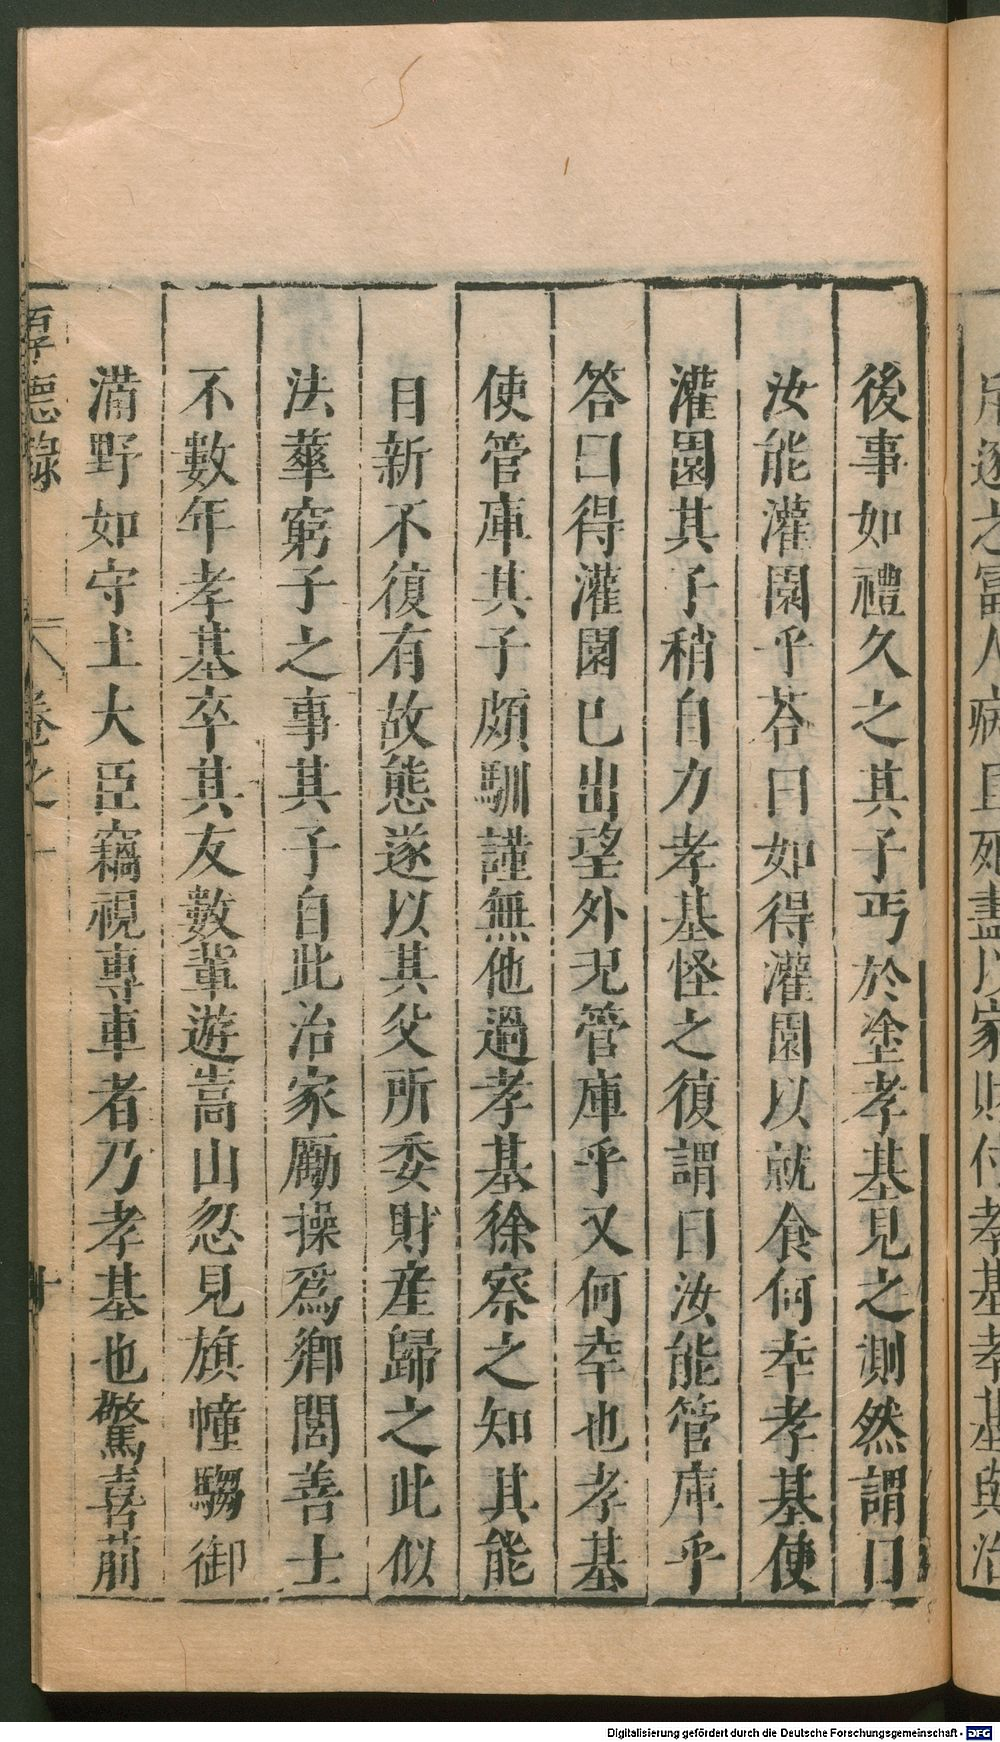 斥逐之富人病且死盡以家財付孝基孝基與治
後事如禮久之其子丐於塗孝基見之測然謂曰
汝能灌園乎荅曰如得灌園以就食何幸孝基使
灌園其子稍自力孝基怪之復謂曰汝能管庫乎
答曰得灌園已出望外况管庫乎又何幸也孝基
使管庫其子頗馴謹無他過孝基徐察之知其能
自新不復有故態遂以其父所委財産歸之此似
法華窮子之事其子自此治家勵操爲鄉閭善士
不數年孝基卒其友數輩遊嵩山忽見旗幢騶御
滿野如守土大臣竊視專車者乃孝基也驚喜前
厚德錄 卷之一 十
Digitalisierung gefördert durch die Deutsche Forschungsgemeinschaft - DFG